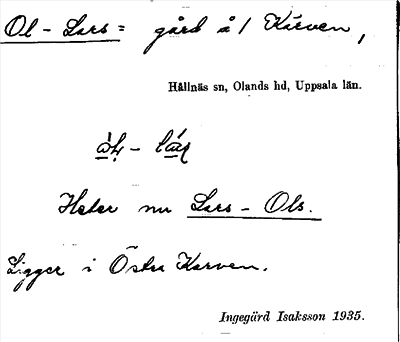 Ol-Lars = gård å/ Kärven,
Hållnäs sn, Olands hd, Uppsala län.
Heter nu Lars-Ols.
Ligger i Östra Kärven.
Ingegärd Isaksson 1935.